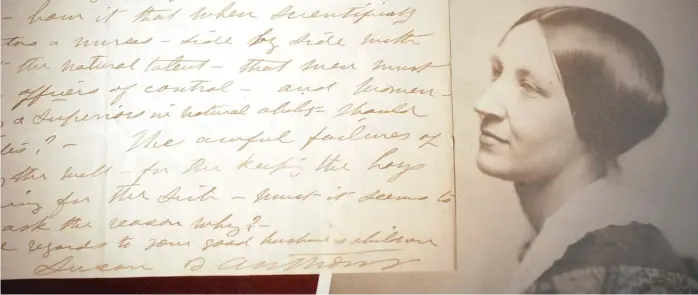 - how is it that when scientifically
a nurses - side by side with
the natural talent - that men must
officers of control - and women -
& Superiors in natural ability - should
The awful failures of
the well - for the keep'g the boys
ing for the sick - must it seems to
ask the reason why? -
regards to your good husband & children
Susan B. Anthony